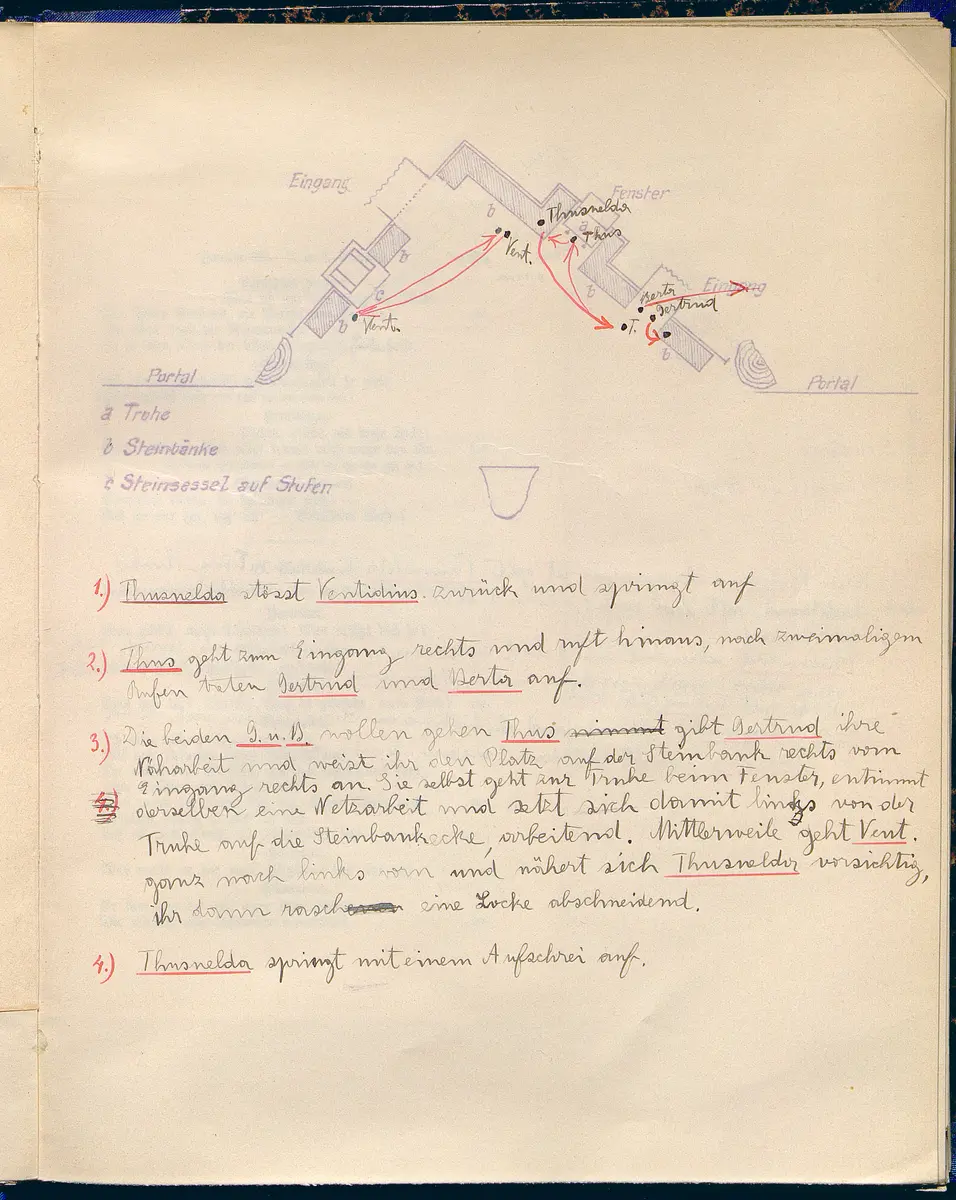 Eingang
Fenster
Thusnelda
b
a
Thus
Vent.
b
b
Eingang
c
Berta
Gertrud
b
Vent.
T.
b
Portal
Portal
a Truhe
b Steinbänke
c Steinsessel auf Stufen
1.) Thusnelda stösst Ventidius. zurück und springt auf
2.) Thus geht zum Eingang rechts und ruft hinaus, nach zweimaligem
Rufen treten Gertrud und Berta auf.
3.) Die beiden G. u. B. wollen gehen Thus nimmt gibt Gertrud ihre
Näharbeit und weist ihr den Platz auf der Steinbank rechts vom
Eingang rechts an. Sie selbst geht zur Truhe beim Fenster, entnimmt
4.) derselben eine Netzarbeit und setzt sich damit links von der
Truhe auf die Steinbankecke, arbeitend. Mittlerweile geht Vent.
ganz nach links vorn und nähert sich Thusnelda vorsichtig,
ihr dann rasch eine Locke abschneidend.
4.) Thusnelda springt mit einem Aufschrei auf.